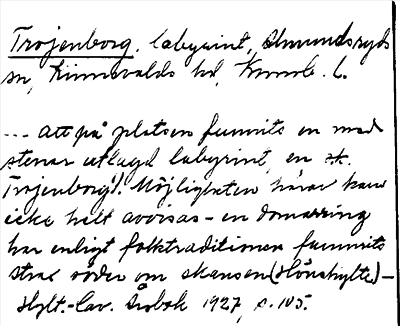 Trojenborg, labyrint, Almundsryds
sn, Kinnevalds hd, Kronob. l.
... att på platsen funnits en med
stenar utlagd labyrint, en sk.
Trojenborg!. Möjligheten härav kan
icke helt avvisas - en domarring
har enligt folktraditionen funnits
strax söder om skansen (Hönshylte) -
Hylt.-Cav. Årsbok 1927, s. 105.